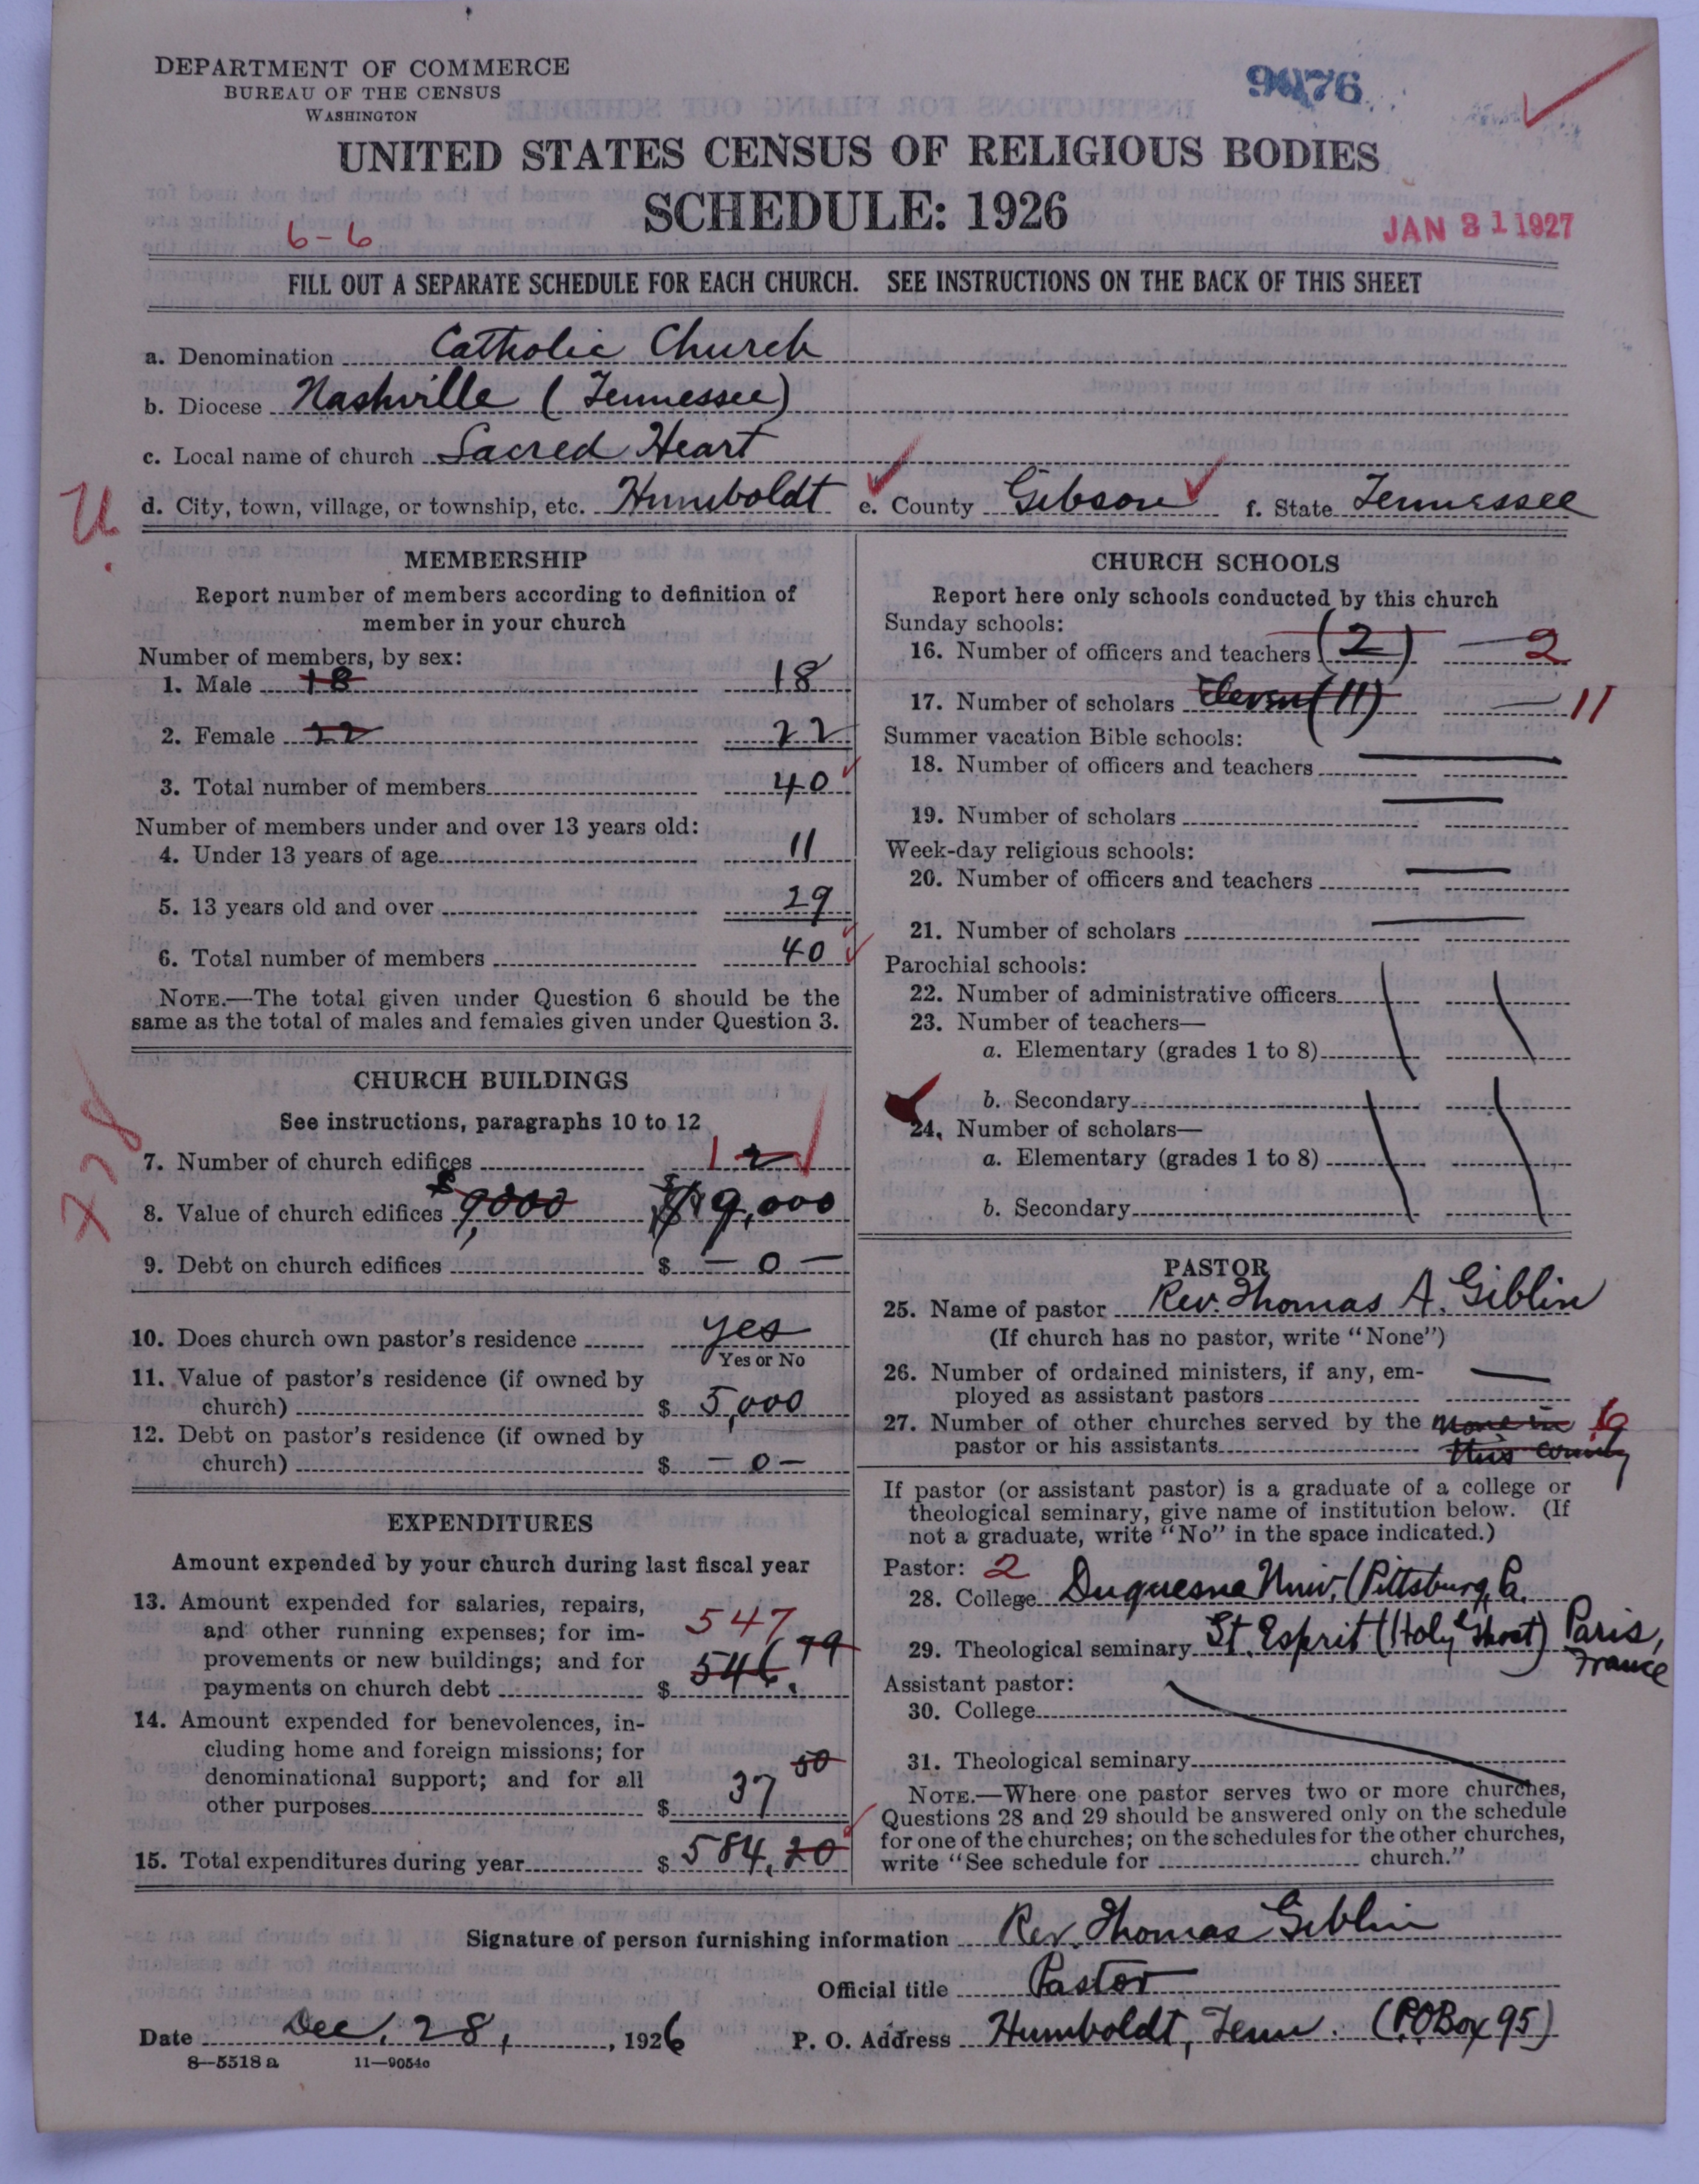 DEPARTMENT OF COMMERCE
BUREAU OF THE CENSUS
WASHINGTON
UNITED STATES CENSUS OF RELIGIOUS BODIES
SCHEDULE: 1926
6-6
JAN 31 1927
FILL OUT A SEPARATE SCHEDULE FOR EACH CHURCH. SEE INSTRUCTIONS ON THE BACK OF THIS SHEET
a. Denomination Catholic Church
b. Diocese Nashville (Tennessee)
c. Local name of church Sacred Heart
d. City, town, village, or township, etc. Humboldt e. County Gibson f. State Tennessee
MEMBERSHIP
Report number of members according to definition of
member in your church
Number of members, by sex:
1. Male 18 18
2. Female 22 22
3. Total number of members 40
Number of members under and over 13 years old:
4. Under 13 years of age 11
5. 13 years old and over 29
6. Total number of members 40
NOTE.—The total given under Question 6 should be the
same as the total of males and females given under Question 3.
CHURCH BUILDINGS
See instructions, paragraphs 10 to 12
728
7. Number of church edifices 1 2
8. Value of church edifices $9000 $9,000
9. Debt on church edifices $ - 0 -
10. Does church own pastor's residence yes
Yes or No
11. Value of pastor's residence (if owned by
church) $ 5,000
12. Debt on pastor's residence (if owned by
church) $ - 0 -
EXPENDITURES
Amount expended by your church during last fiscal year
13. Amount expended for salaries, repairs,
and other running expenses; for im-
provements or new buildings; and for
payments on church debt $ 546. 79
547
14. Amount expended for benevolences, in-
cluding home and foreign missions; for
denominational support; and for all
other purposes $ 37 50
15. Total expenditures during year $ 584.20
CHURCH SCHOOLS
Report here only schools conducted by this church
Sunday schools:
16. Number of officers and teachers (2) 2
17. Number of scholars Eleven (11) 11
Summer vacation Bible schools:
18. Number of officers and teachers
19. Number of scholars
Week-day religious schools:
20. Number of officers and teachers
21. Number of scholars
Parochial schools:
22. Number of administrative officers
23. Number of teachers—
a. Elementary (grades 1 to 8)
b. Secondary
24. Number of scholars—
a. Elementary (grades 1 to 8)
b. Secondary
PASTOR
25. Name of pastor Rev. Thomas A. Giblin
(If church has no pastor, write "None")
26. Number of ordained ministers, if any, em-
ployed as assistant pastors
27. Number of other churches served by the none in
pastor or his assistants this county
If pastor (or assistant pastor) is a graduate of a college or
theological seminary, give name of institution below. (If
not a graduate, write "No" in the space indicated.)
Pastor: 2
28. College Duquesne Univ. (Pittsburg, Pa.
29. Theological seminary St. Esprit (Holy Ghost) Paris,
France
Assistant pastor:
30. College
31. Theological seminary
NOTE.—Where one pastor serves two or more churches,
Questions 28 and 29 should be answered only on the schedule
for one of the churches; on the schedules for the other churches,
write "See schedule for church."
Signature of person furnishing information Rev. Thomas Giblin
Official title Pastor
Date Dec. 28, , 1926 P. O. Address Humboldt, Tenn. (P.O Box 95)
8—5518 a 11—9054c